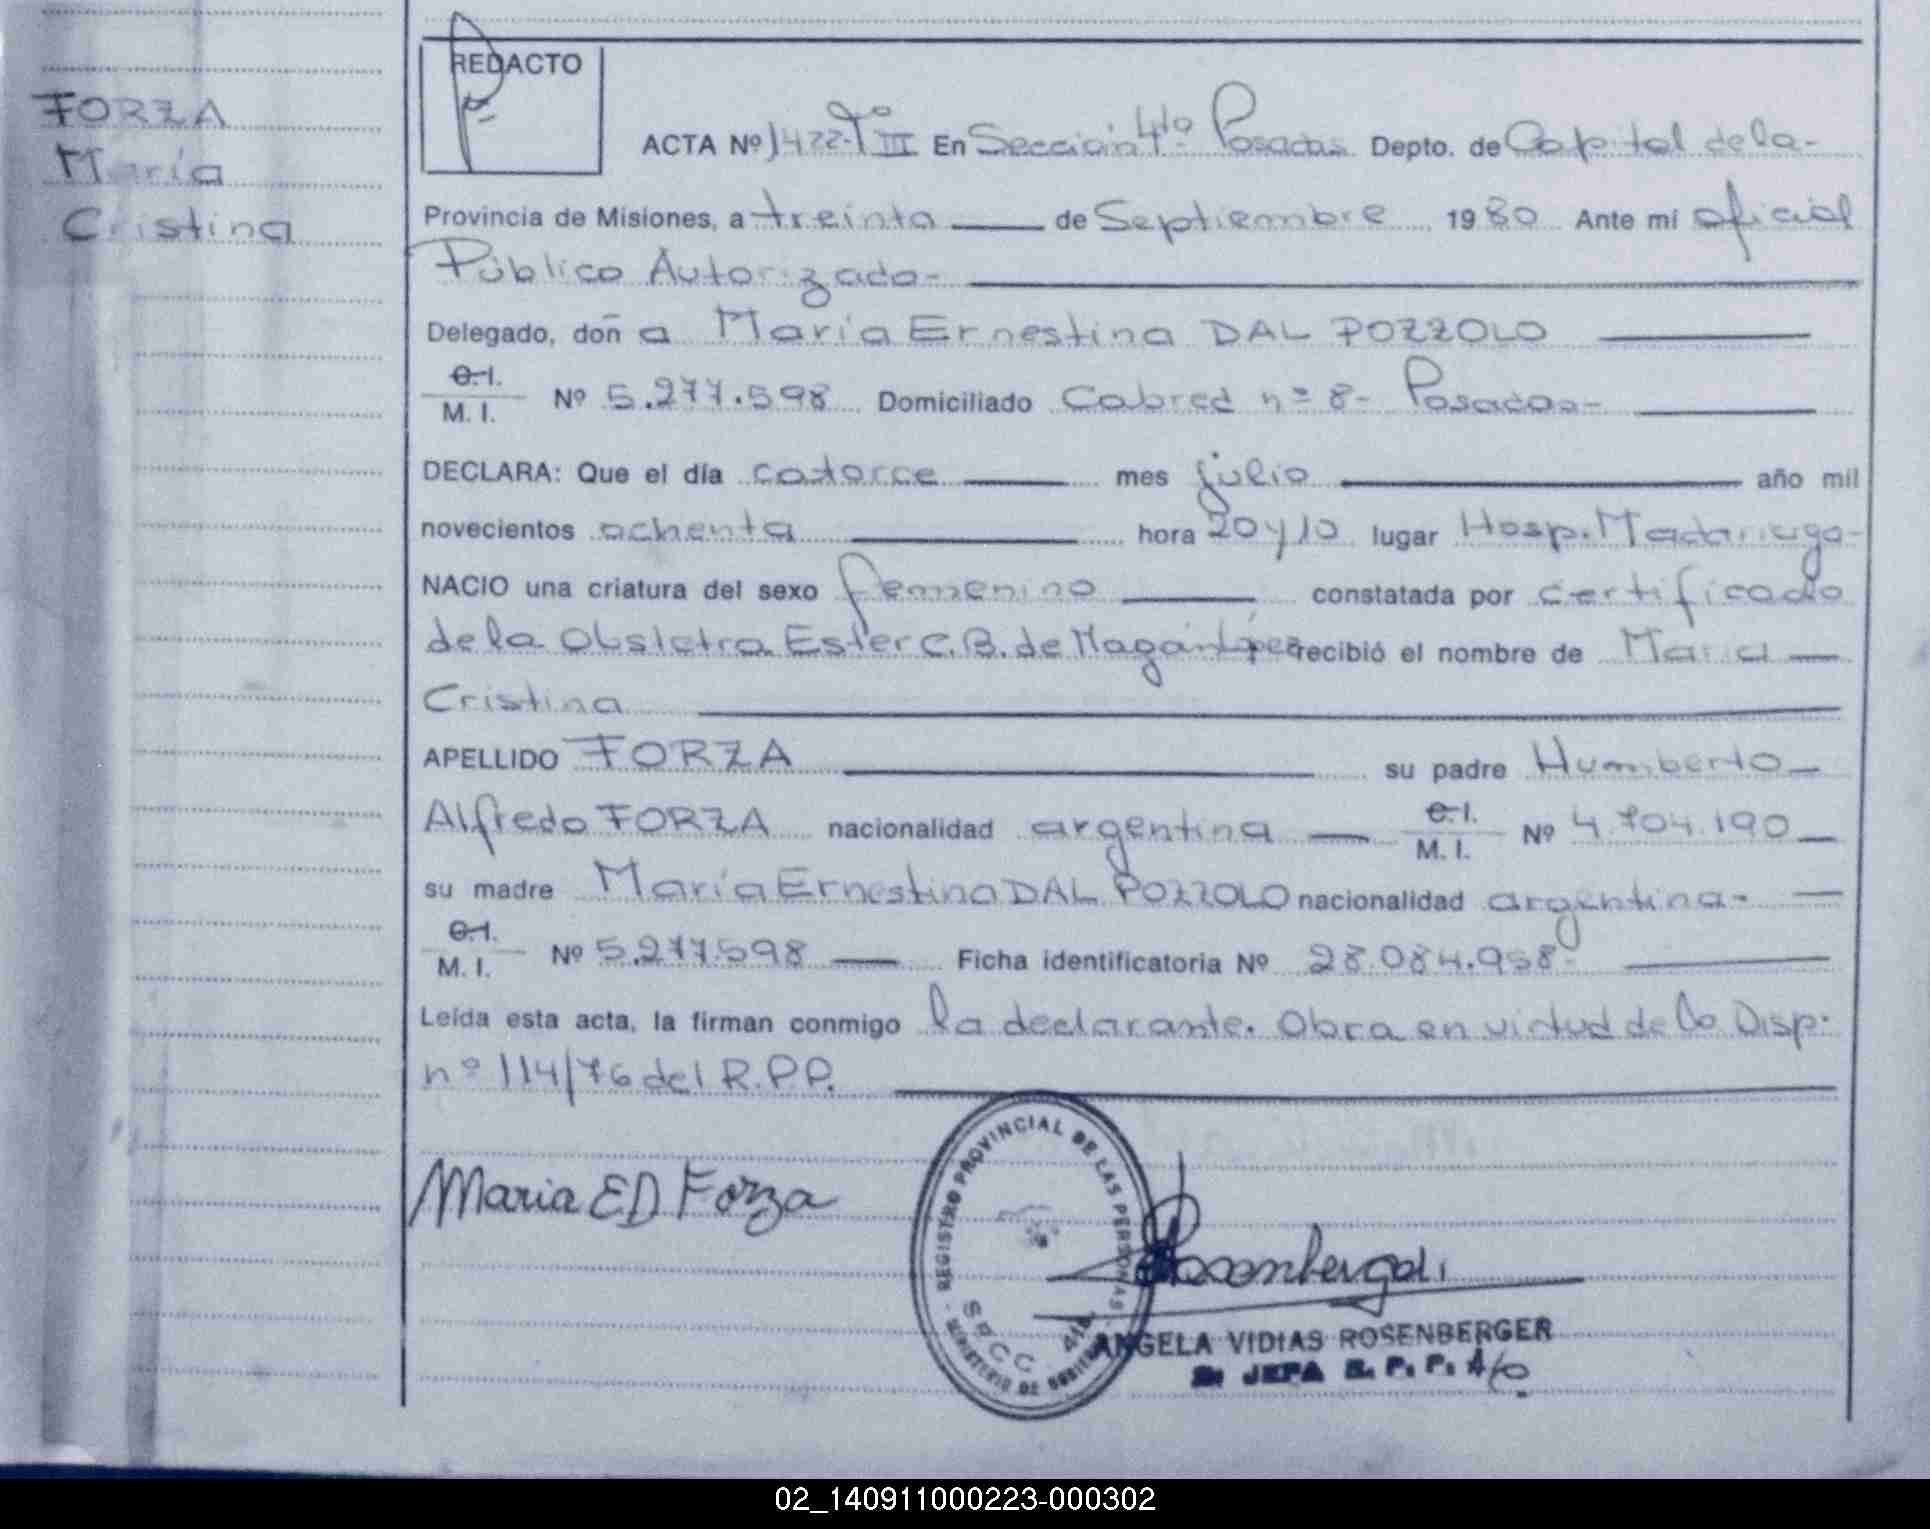 FORZA
María
Cristina
REDACTO
ACTA Nº 1422-Tº III En Sección 4ta. Posadas Depto. de Capital de la-
Provincia de Misiones, a treinta de Septiembre 1980 Ante mi oficial
Público Autorizado-
Delegado, doña María Ernestina DAL POZZOLO
C.I.
M. I. Nº 5.277.598 Domiciliado Cabred nº 8- Posadas-
DECLARA: Que el día catorce mes julio año mil
novecientos ochenta hora 20 y 10 lugar Hosp. Madariaga-
NACIO una criatura del sexo femenino constatada por certificado
de la Obstetra Ester C. B. de Magán López recibió el nombre de María
Cristina
APELLIDO FORZA su padre Humberto
Alfredo FORZA nacionalidad argentina C.I.
M. I. Nº 4.704.190
su madre María Ernestina DAL POZZOLO nacionalidad argentina-
C.I.
M. I. Nº 5.277.598 Ficha identificatoria Nº 28.084.958-
Leída esta acta, la firman conmigo la declarante. Obra en virtud de la Disp.
nº 114/76 del R.P.P.
Maria E D Forza
REGISTRO PROVINCIAL DE LAS PERSONAS
SECC. 4ta
MINISTERIO DE GOBIERNO
ANGELA VIDIAS ROSENBERGER
JEFA R. P. P. A/C.
02_140911000223-000302